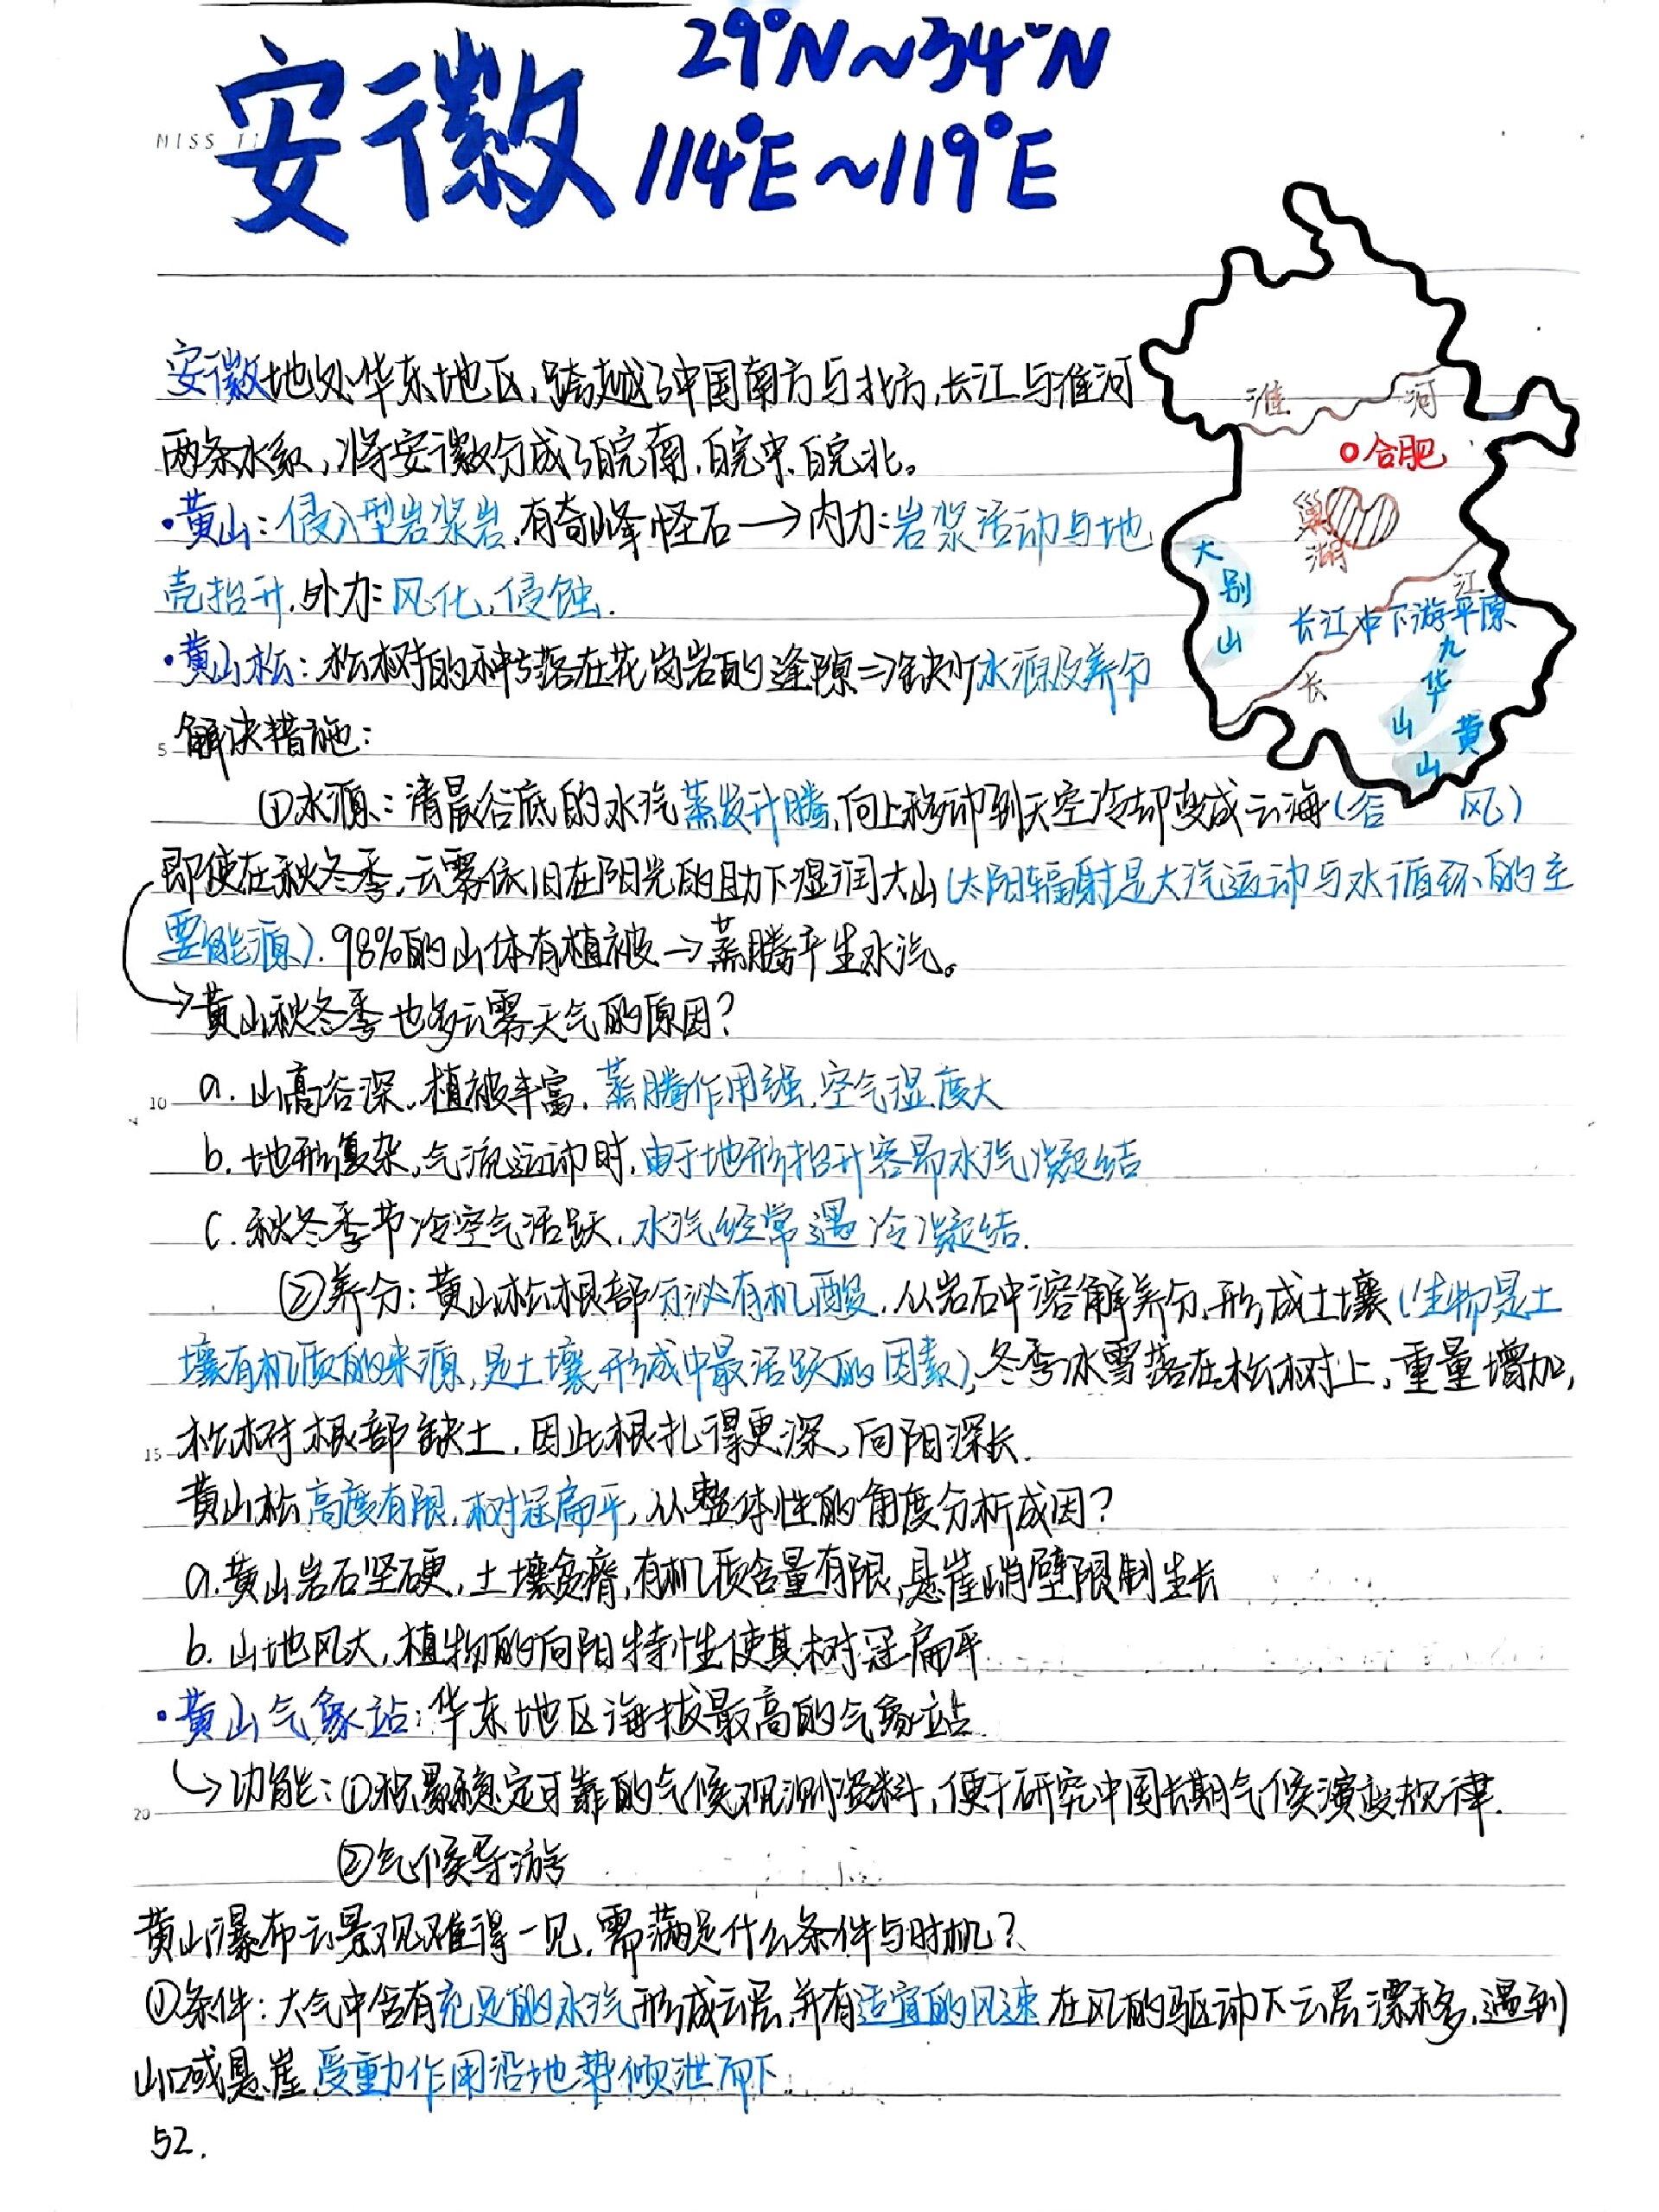 安徽 29°N~34°N
114°E~119°E
MISS
安徽地处华东地区,跨越了中国南方与北方,长江与淮河
两条水系,将安徽分成了皖南、皖中、皖北。
·黄山:侵入型岩浆岩,有奇峰怪石→内力:岩浆活动与地
壳抬升,外力:风化、侵蚀.
·黄山松:松树的种子落在花岗岩的逢隙⇒缺少水源及养分
5 解决措施:
①水源:清晨谷底的水汽蒸发升腾,向上移动到天空冷却变成云海(谷 风)
即使在秋冬季,云雾依旧在阳光的助下湿润大山(太阳辐射是大汽运动与水循环的主
要能源).98%的山体有植被→蒸腾产生水汽。
→黄山秋冬季也多云雾天气的原因?
10 a.山高谷深,植被丰富,蒸腾作用强,空气湿度大
b.地形复杂,气流运动时,由于地形抬升容易水汽凝结
c.秋冬季节冷空气活跃,水汽经常遇冷凝结.
②养分:黄山松根部分泌有机酸,从岩石中溶解养分,形成土壤(生物是土
壤有机质的来源,是土壤形成中最活跃的因素),冬季冰雪落在松树上,重量增加,
15 松树根部缺土,因此根扎得更深,向阳深长.
黄山松高度有限,树冠扁平,从整体性的角度分析成因?
a.黄山岩石坚硬,土壤贫瘠,有机质含量有限,悬崖峭壁限制生长
b.山地风大,植物的向阳特性使其树冠扁平
·黄山气象站:华东地区海拔最高的气象站
↳功能:①积累稳定可靠的气候观测资料,便于研究中国长期气候演变规律.
20
②气候导游
黄山瀑布云景观难得一见,需满足什么条件与时机?
①条件:大气中含有充足的水汽形成云层,并有适宜的风速在风的驱动下云层漂移,遇到
山口或悬崖受重力作用沿地势倾泄而下
52.
淮 河
合肥
巢湖
大别山
江
长江中下游平原
长
九华山
黄山